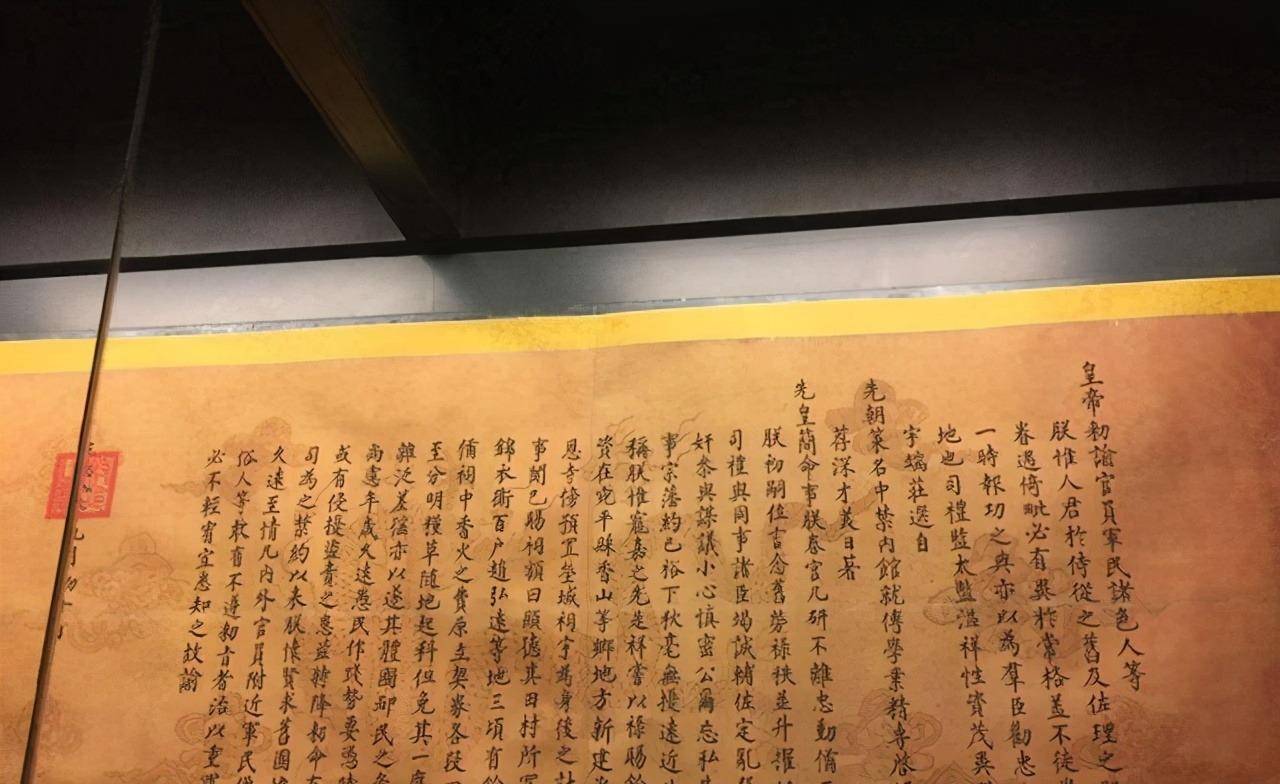 皇帝勑諭官員軍民諸色人等
朕惟人君於侍從之舊及佐理之
眷遇倚毗必有異於常格蓋不徒
一時報功之典亦以為羣臣勸忠
地也司禮監太監溫祥性資茂
宇端莊選自
先朝策名中禁內館就傳學業精專啓
荐深才美日著
先皇簡命事朕春官几研不離忠勤俻
朕初嗣位言念舊勞祿秩並升擢
司禮與同事諸臣竭誠輔佐定亂
奸叅與謀議小心慎密公爾忘私
事宗藩約己裕下秋毫無擾遠近
稱朕惟寵嘉之先是祥嘗以祿賜餘
資在宛平縣香山等鄉地方新建
恩寺傍預置塋域祠宇為身後之計
事聞已賜祠額曰顯德其田村所
錦衣衛百戶趙弘達等地三頃有餘
俻祠中香火之費原立契券各段
至分明糧草隨地起科但免其一應
雜泛差徭亦以遂其體國卹民之
尚慮年歲久遠愚民作踐勢要憑
或有侵擾盜賣之患茲特降勑命
司為之禁約以表朕懷賢求舊圖
久遠至情凡內外官員附近軍民
俗人等敢有不遵勑旨者治以重
必不輕宥宜悉知之故諭
九月初十